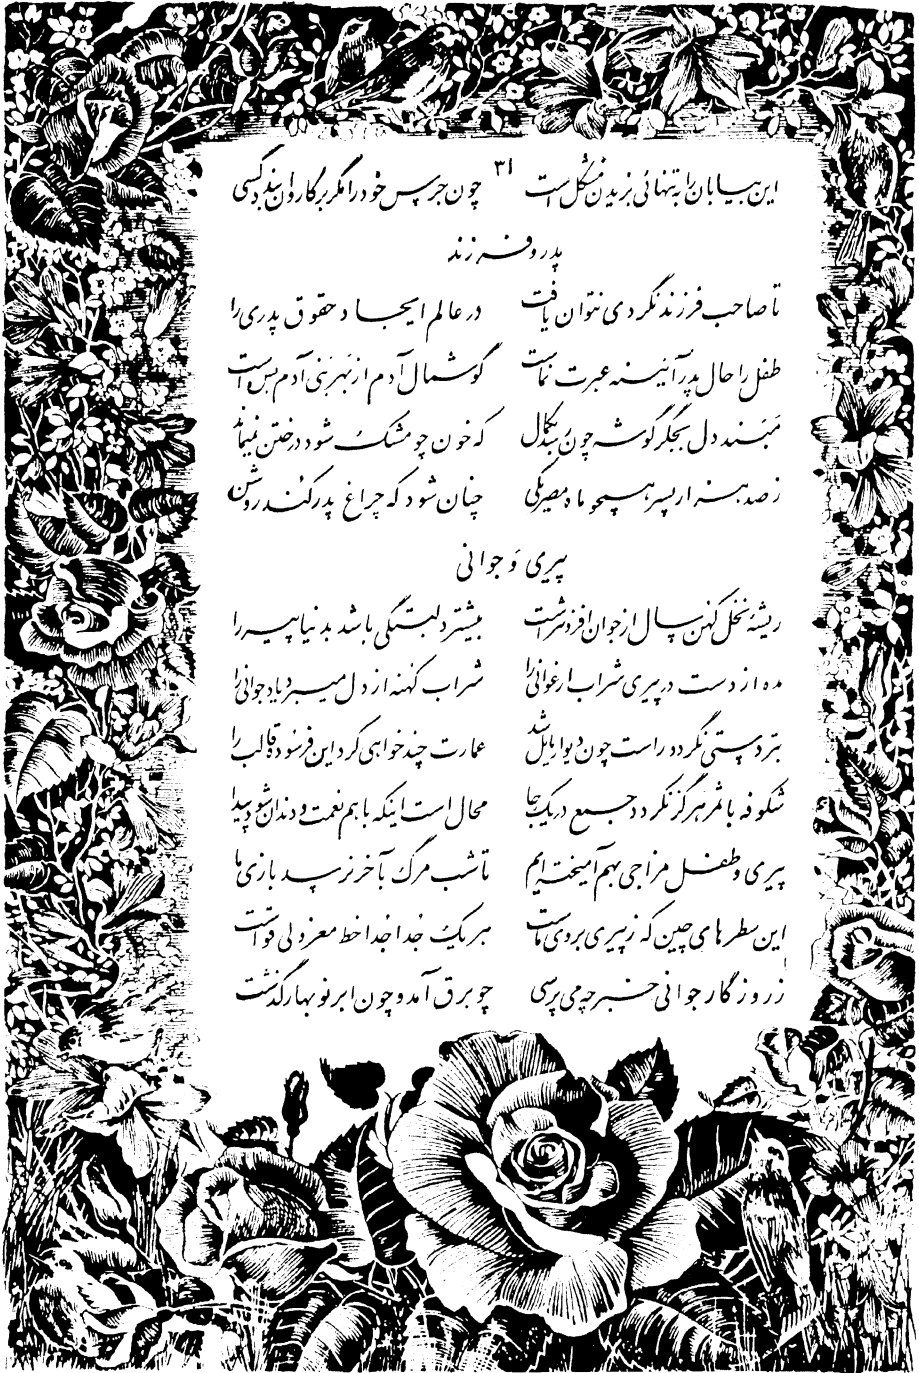 ۳۱
این بیابان را به تنهائی بریدن مشکل است چون جرس خود را مگر بر کاروان بندد کسی
پدر و فرزند
تا صاحب فرزند نگردی نتوان یافت در عالم ایجاد حقوق پدری را
طفل را حال پدر آئینه عبرت نماست گوشمال آدم از بهر بنی آدم بس است
مبند دل بجگر گوشه چون رسد بکمال که خون چو مشک شود در ختن نمیماند
ز صد هنر از پسر همچو ماه مصر یکی چنان شود که چراغ پدر کند روشن
پیری و جوانی
ریشهٔ نخل کهن سال از جوان افزونتر است بیشتر دلبستگی باشد بدنیا پیر را
مده از دست در پیری شراب ارغوانی را شراب کهنه از دل میبرد یاد جوانی را
بتردستی نگردد راست چون دیوار مایل شد عمارت چند خواهی کرد این فرسوده قالب را
شکوفه با ثمر هرگز نگردد جمع در یک جا محال است اینکه با هم نعمت و دندان شود پیدا
پیری و طفل مزاجی بهم آمیخته ایم تا شب مرگ بآخر نرسد بازی ما
این سطرهای چین که ز پیری بروی ماست هر یک جدا جدا خط معزولی قواست
ز روزگار جوانی خبر چه می پرسی چو برق آمد و چون ابر نوبهار گذشت